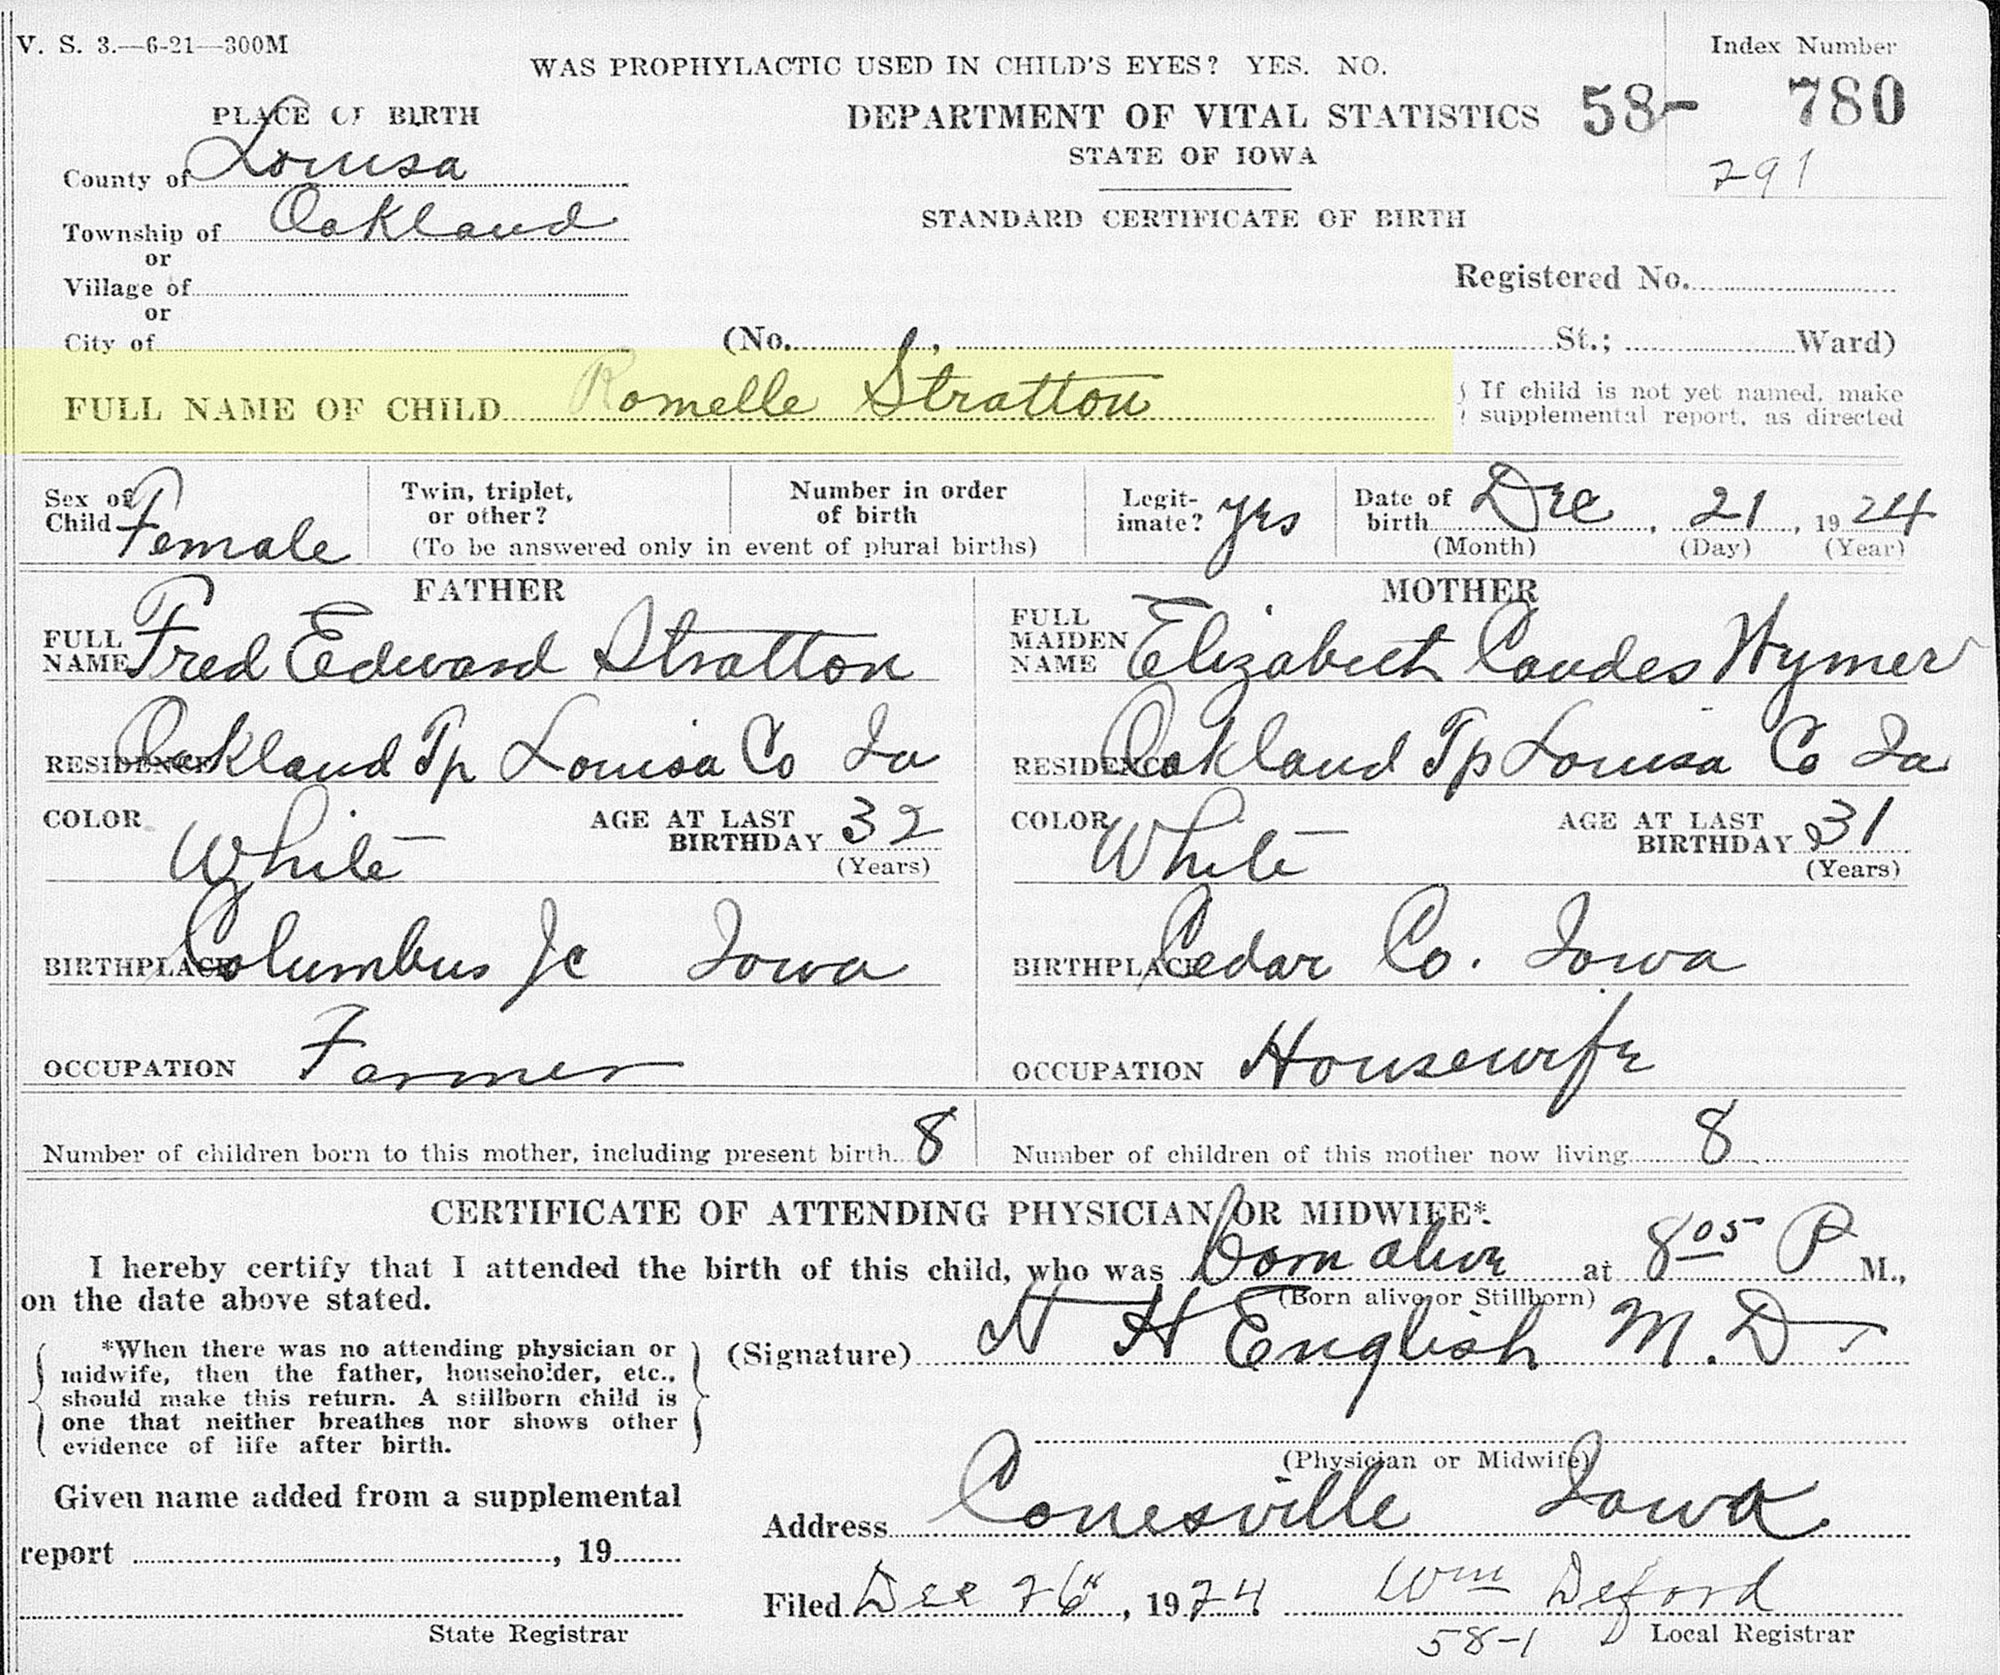 V. S. 3.—6-21—300M
WAS PROPHYLACTIC USED IN CHILD'S EYES? YES. NO.
Index Number
58- 780
791
PLACE OF BIRTH
DEPARTMENT OF VITAL STATISTICS
STATE OF IOWA
STANDARD CERTIFICATE OF BIRTH
County of Louisa
Township of Oakland
or
Village of
or
Registered No.
City of (No. , St.; Ward)
FULL NAME OF CHILD Romelle Stratton
If child is not yet named, make
supplemental report, as directed
Sex of Child Female
Twin, triplet, or other?
Number in order of birth
(To be answered only in event of plural births)
Legit-imate? yes
Date of birth Dec , 21 , 19 24
(Month) (Day) (Year)
FATHER
FULL NAME Fred Edward Stratton
RESIDENCE Oakland Tp Louisa Co Ia
COLOR White AGE AT LAST BIRTHDAY 32
(Years)
BIRTHPLACE Columbus Jc Iowa
OCCUPATION Farmer
MOTHER
FULL MAIDEN NAME Elizabeth Candes Hymer
RESIDENCE Oakland Tp Louisa Co Ia
COLOR White AGE AT LAST BIRTHDAY 31
(Years)
BIRTHPLACE Cedar Co. Iowa
OCCUPATION Housewife
Number of children born to this mother, including present birth 8
Number of children of this mother now living 8
CERTIFICATE OF ATTENDING PHYSICIAN OR MIDWIFE*.
I hereby certify that I attended the birth of this child, who was born alive at 8 05 P M.,
(Born alive or Stillborn)
on the date above stated.
*When there was no attending physician or
midwife, then the father, householder, etc.,
should make this return. A stillborn child is
one that neither breathes nor shows other
evidence of life after birth.
(Signature) H English M. D
(Physician or Midwife)
Given name added from a supplemental
report , 19
State Registrar
Address Conesville Iowa.
Filed Dec 26" , 1924 Wm Deford
58-1 Local Registrar